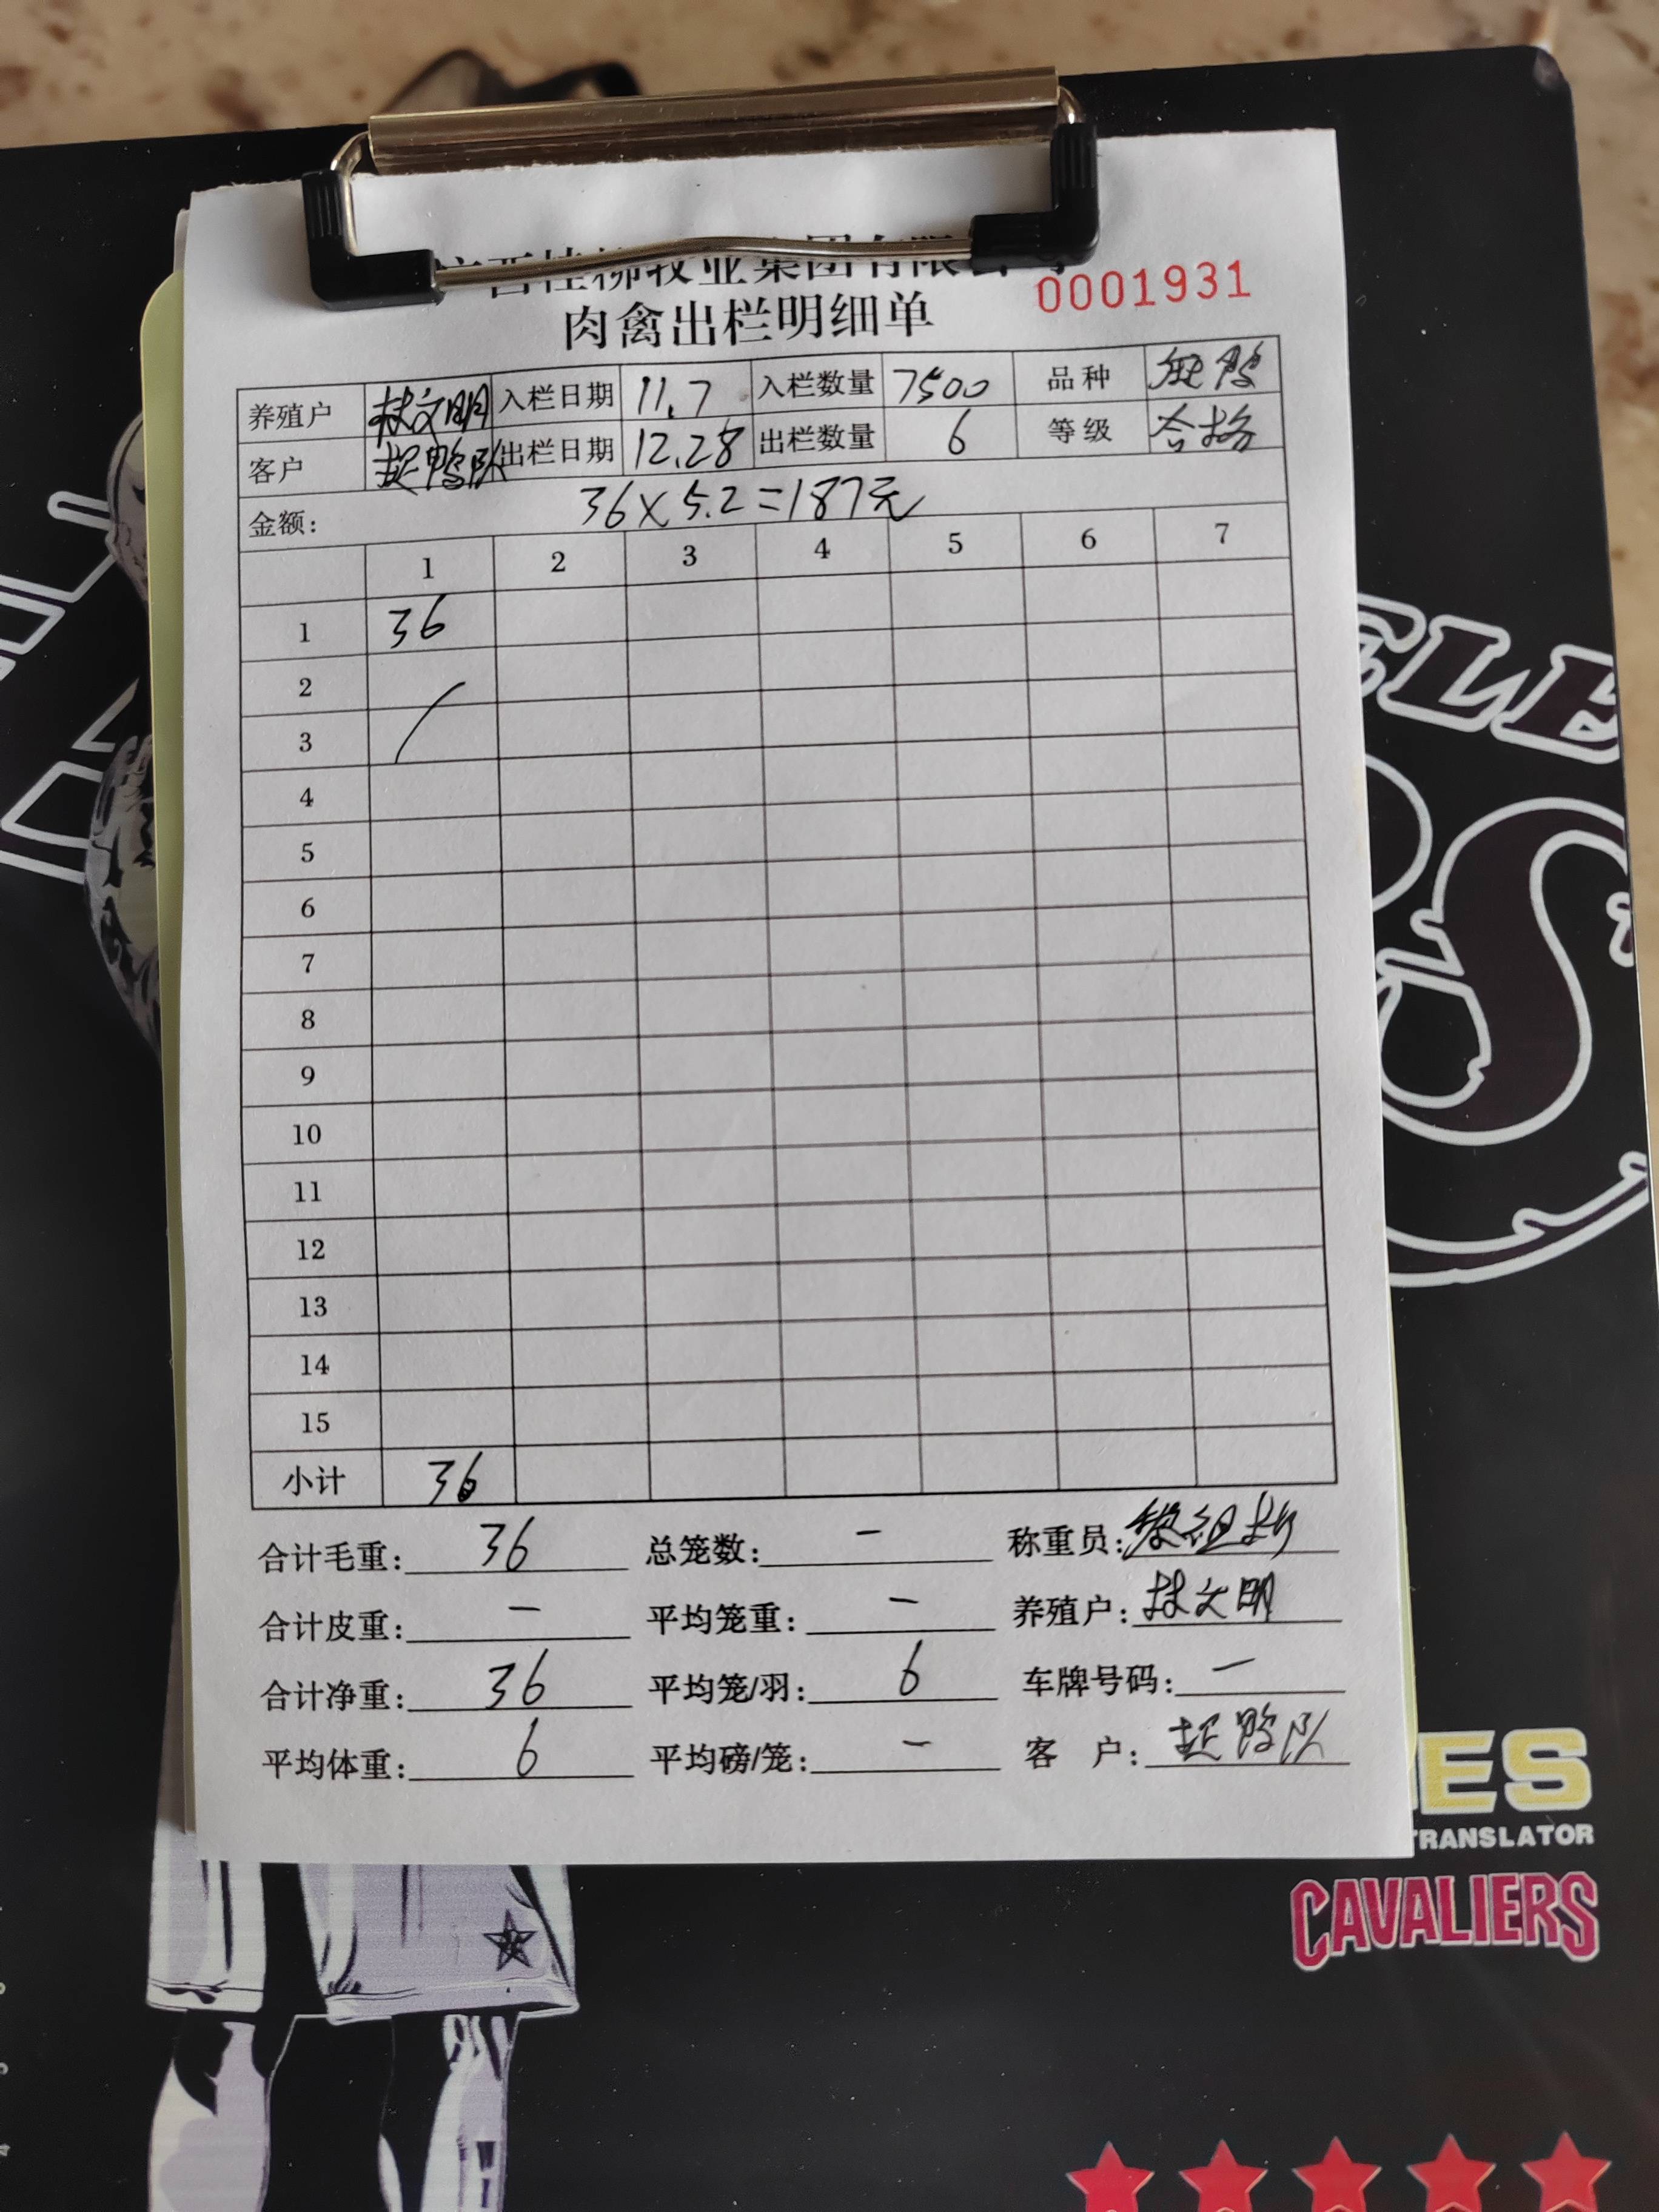 广西桂柳牧业集团有限公司
0001931
肉禽出栏明细单
养殖户 林文明 入栏日期 11.7 入栏数量 7500 品种
客户 捉鸭队 出栏日期 12.28 出栏数量 6 等级 合格
金额: 36×5.2=187元
1 2 3 4 5 6 7
1 36
2
3
4
5
6
7
8
9
10
11
12
13
14
15
小计 36
合计毛重: 36 总笼数: - 称重员:
合计皮重: - 平均笼重: - 养殖户: 林文明
合计净重: 36 平均笼/羽: 6 车牌号码: -
平均体重: 6 平均磅/笼: - 客 户: 捉鸭队
ES
TRANSLATOR
CAVALIERS